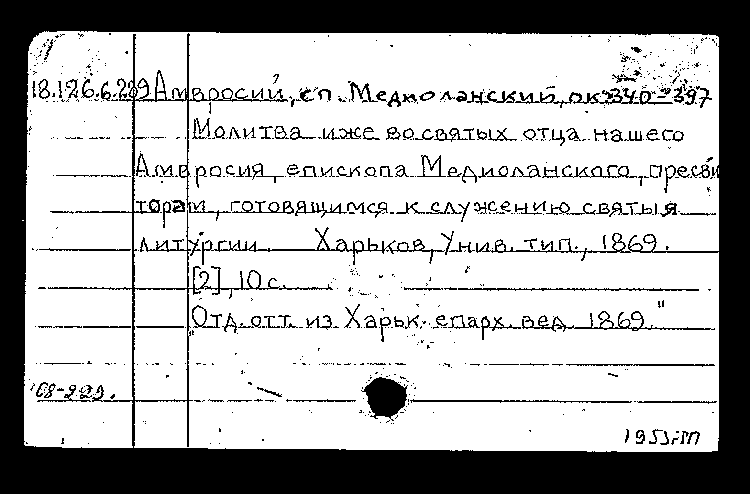 18.126.6.289 Амвросий, еп. Медиоланский, ок. 340-397
Молитва иже во святых отца нашего
Амвросия, епископа Медиоланского, пресви
торам, готовящимся к служению святыя
литургии. Харьков, Унив. тип., 1869.
[2], 10 с.
"Отд. отт. из Харьк. епарх. вед. 1869."
68-229.